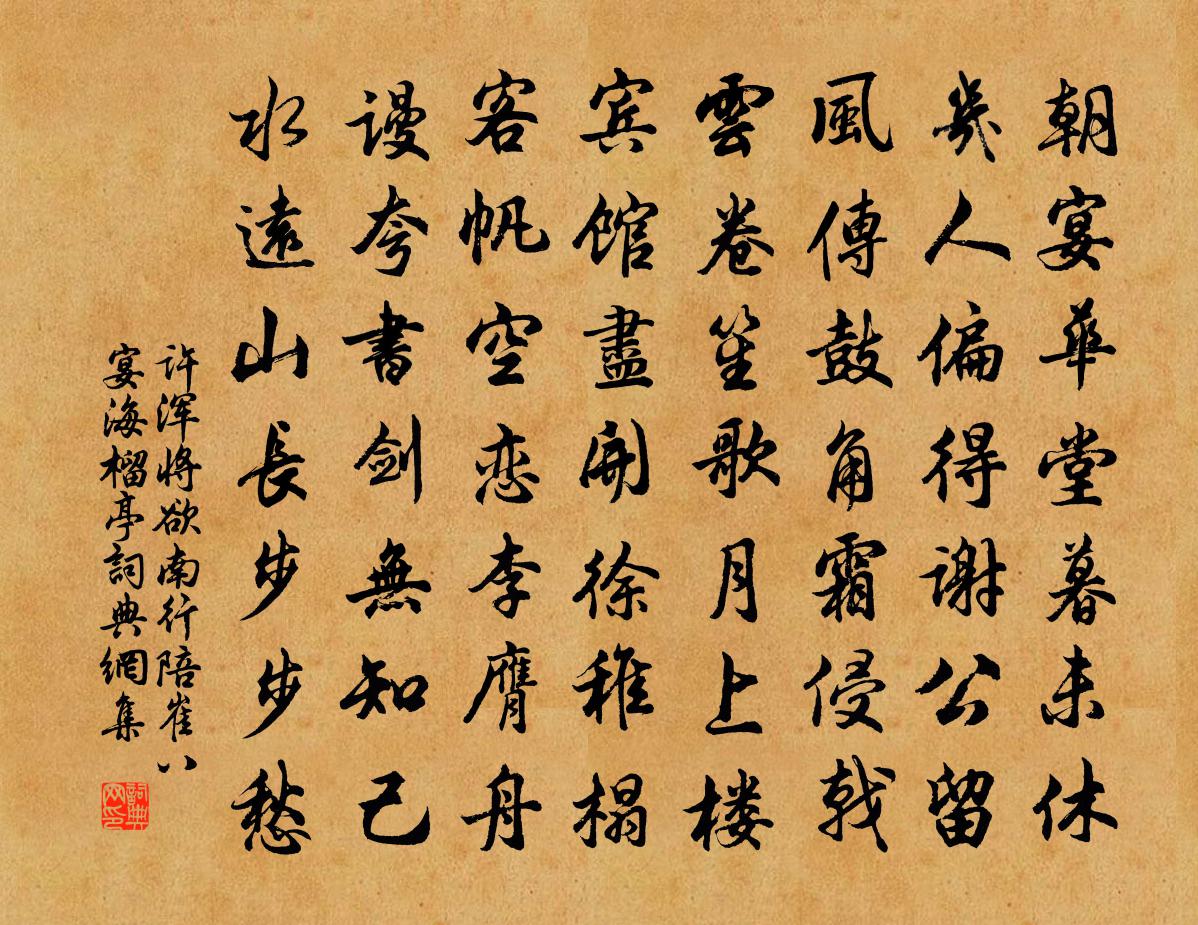 朝宴華堂暮未休
幾人偏得謝公留
風傳鼓角霜侵戟
雲卷笙歌月上楼
宾馆盡開徐稚榻
客帆空恋李膺舟
謾夸書剑無知己
水遠山長步步愁
许浑将欲南行陪崔八
宴海榴亭詞典網集
詞典网印